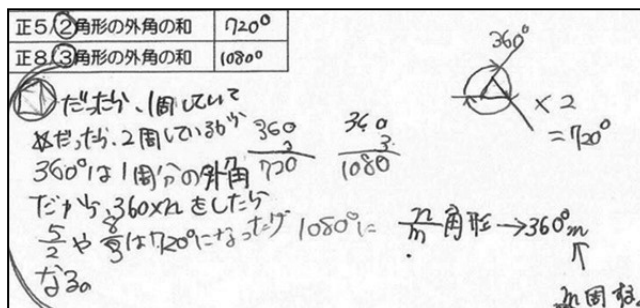 正5/2角形の外角の和 720°
正8/3角形の外角の和 1080°
だったら、1周していて
☆だったら、2周しているから
360°は1周分の外角
だから、360×nをしたら
5/2や8/3は720°になったり1080°に
なる。
360
2
720
360
3
1080
360°
×2
=720°
n/m角形→360°m
↑
m周する